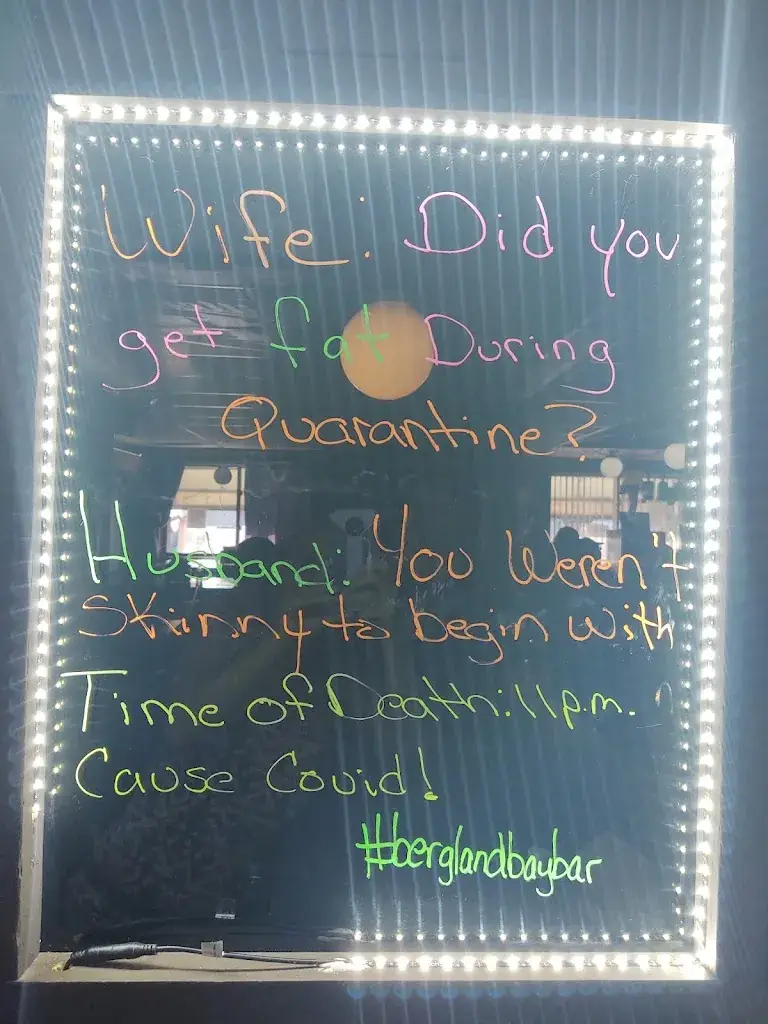 Wife: Did you
get fat During
Quarantine?
Husband: You Weren't
Skinny to begin with
Time of Death: 11 p.m.
Cause Covid!
#berglandbaybar